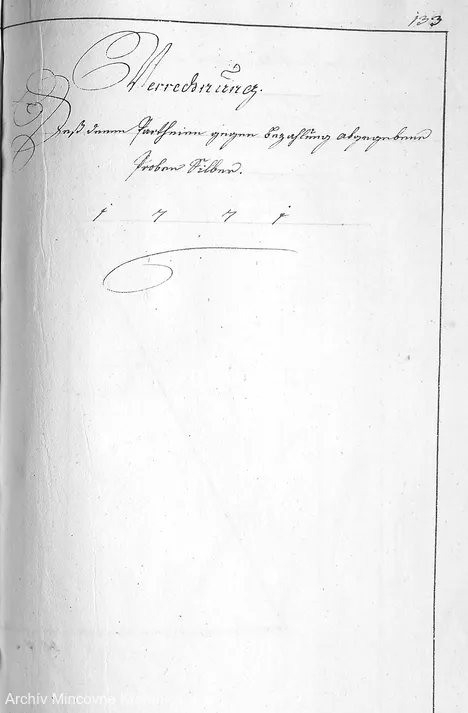 133
Verrechnung.
Deß denen Partheien gegen Bezahlung abgegebene
Proben Silber.
1 7 7 1
Archív Mincovne Kremnica